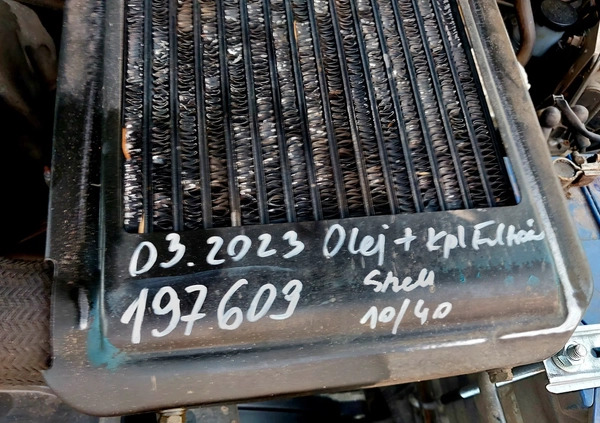 03.2023 Olej + kpl Filtrów
197609 Shell
10/40